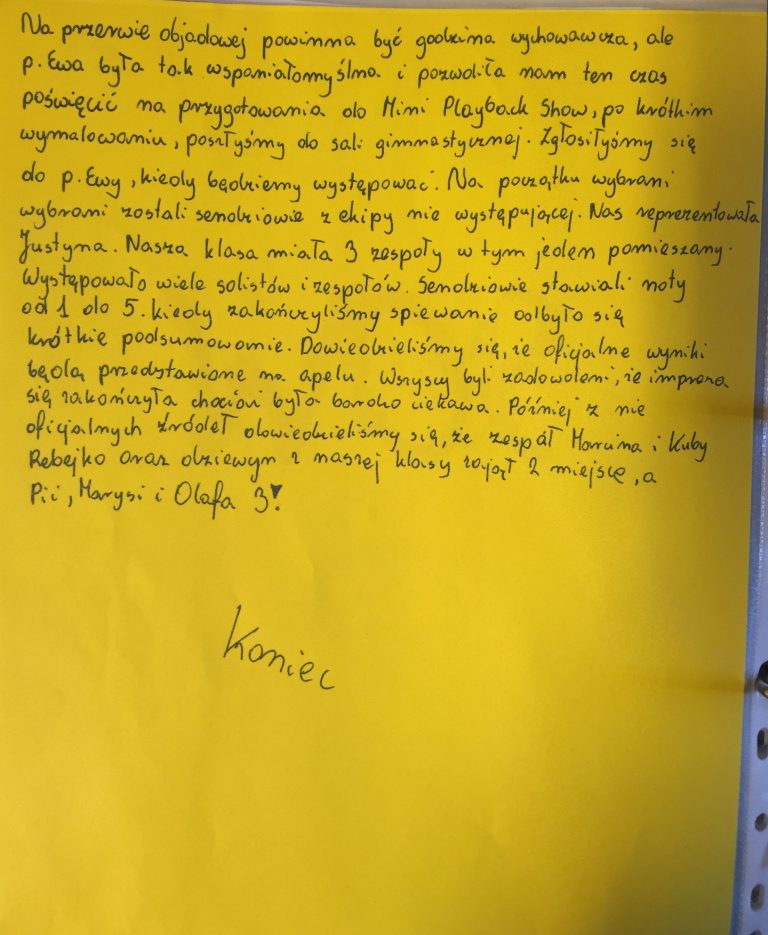 Na przerwie objadowej powinna być godzina wychowawcza, ale
p. Ewa była tak wspaniałomyślna i pozwoliła nam ten czas
poświęcić na przygotowania do Mini Playback Show, po krótkim
wymalowaniu, poszłyśmy do sali gimnastycznej. Zgłosiłyśmy się
do p. Ewy, kiedy będziemy występować. Na początku wybrani
wybrani zostali sendziowie z ekipy nie występującej. Nas reprezentowała
Justyna. Nasza klasa miała 3 zespoły w tym jeden pomieszany.
Występowało wiele solistów i zespołów. Sendziowie stawiali noty
od 1 do 5. kiedy zakończyliśmy spiewanie odbyło się
krótkie podsumowanie. Dowiedzieliśmy się, że oficjalne wyniki
będą przedstawione na apelu. Wszyscy byli zadowoleni, że impreza
się zakończyła chociaż była bardzo ciekawa. Później z nie
oficjalnych źródeł dowiedzieliśmy się, że zespół Marcina i Kuby
Rebejko oraz dziewyn z naszej klasy zajął 2 miejsce, a
Pii, Marysi i Olafa 3!
Koniec